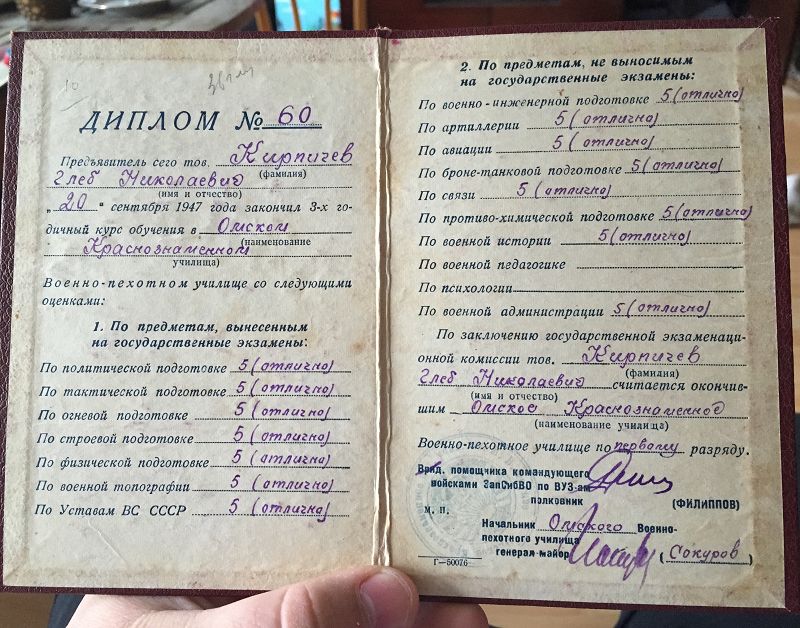 ДИПЛОМ № 60
Предъявитель сего тов. Кирпичев
(фамилия)
Глеб Николаевич
(имя и отчество)
„20“ сентября 1947 года закончил 3-х го-
дичный курс обучения в Омском
(наименование
Краснознаменном
училища)
Военно-пехотном училище со следующими
оценками:
1. По предметам, вынесенным
на государственные экзамены:
По политической подготовке 5 (отлично)
По тактической подготовке 5 (отлично)
По огневой подготовке 5 (отлично)
По строевой подготовке 5 (отлично)
По физической подготовке 5 (отлично)
По военной топографии 5 (отлично)
По Уставам ВС СССР 5 (отлично)
2. По предметам, не выносимым
на государственные экзамены:
По военно-инженерной подготовке 5 (отлично)
По артиллерии 5 (отлично)
По авиации 5 (отлично)
По броне-танковой подготовке 5 (отлично)
По связи 5 (отлично)
По противо-химической подготовке 5 (отлично)
По военной истории 5 (отлично)
По военной педагогике
По психологии
По военной администрации 5 (отлично)
По заключению государственной экзаменаци-
онной комиссии тов. Кирпичев
(фамилия)
Глеб Николаевич считается окончив-
(имя и отчество)
шим Омское Краснознаменное
(наименование училища)
Военно-пехотное училище по первому разряду.
Врид. помощника командующего
войсками ЗапСибВО по ВУЗ-ам
полковник (ФИЛИППОВ)
М. П.
Начальник Омского Военно-
пехотного училища
генерал-майор (Сокуров)
Г—50076